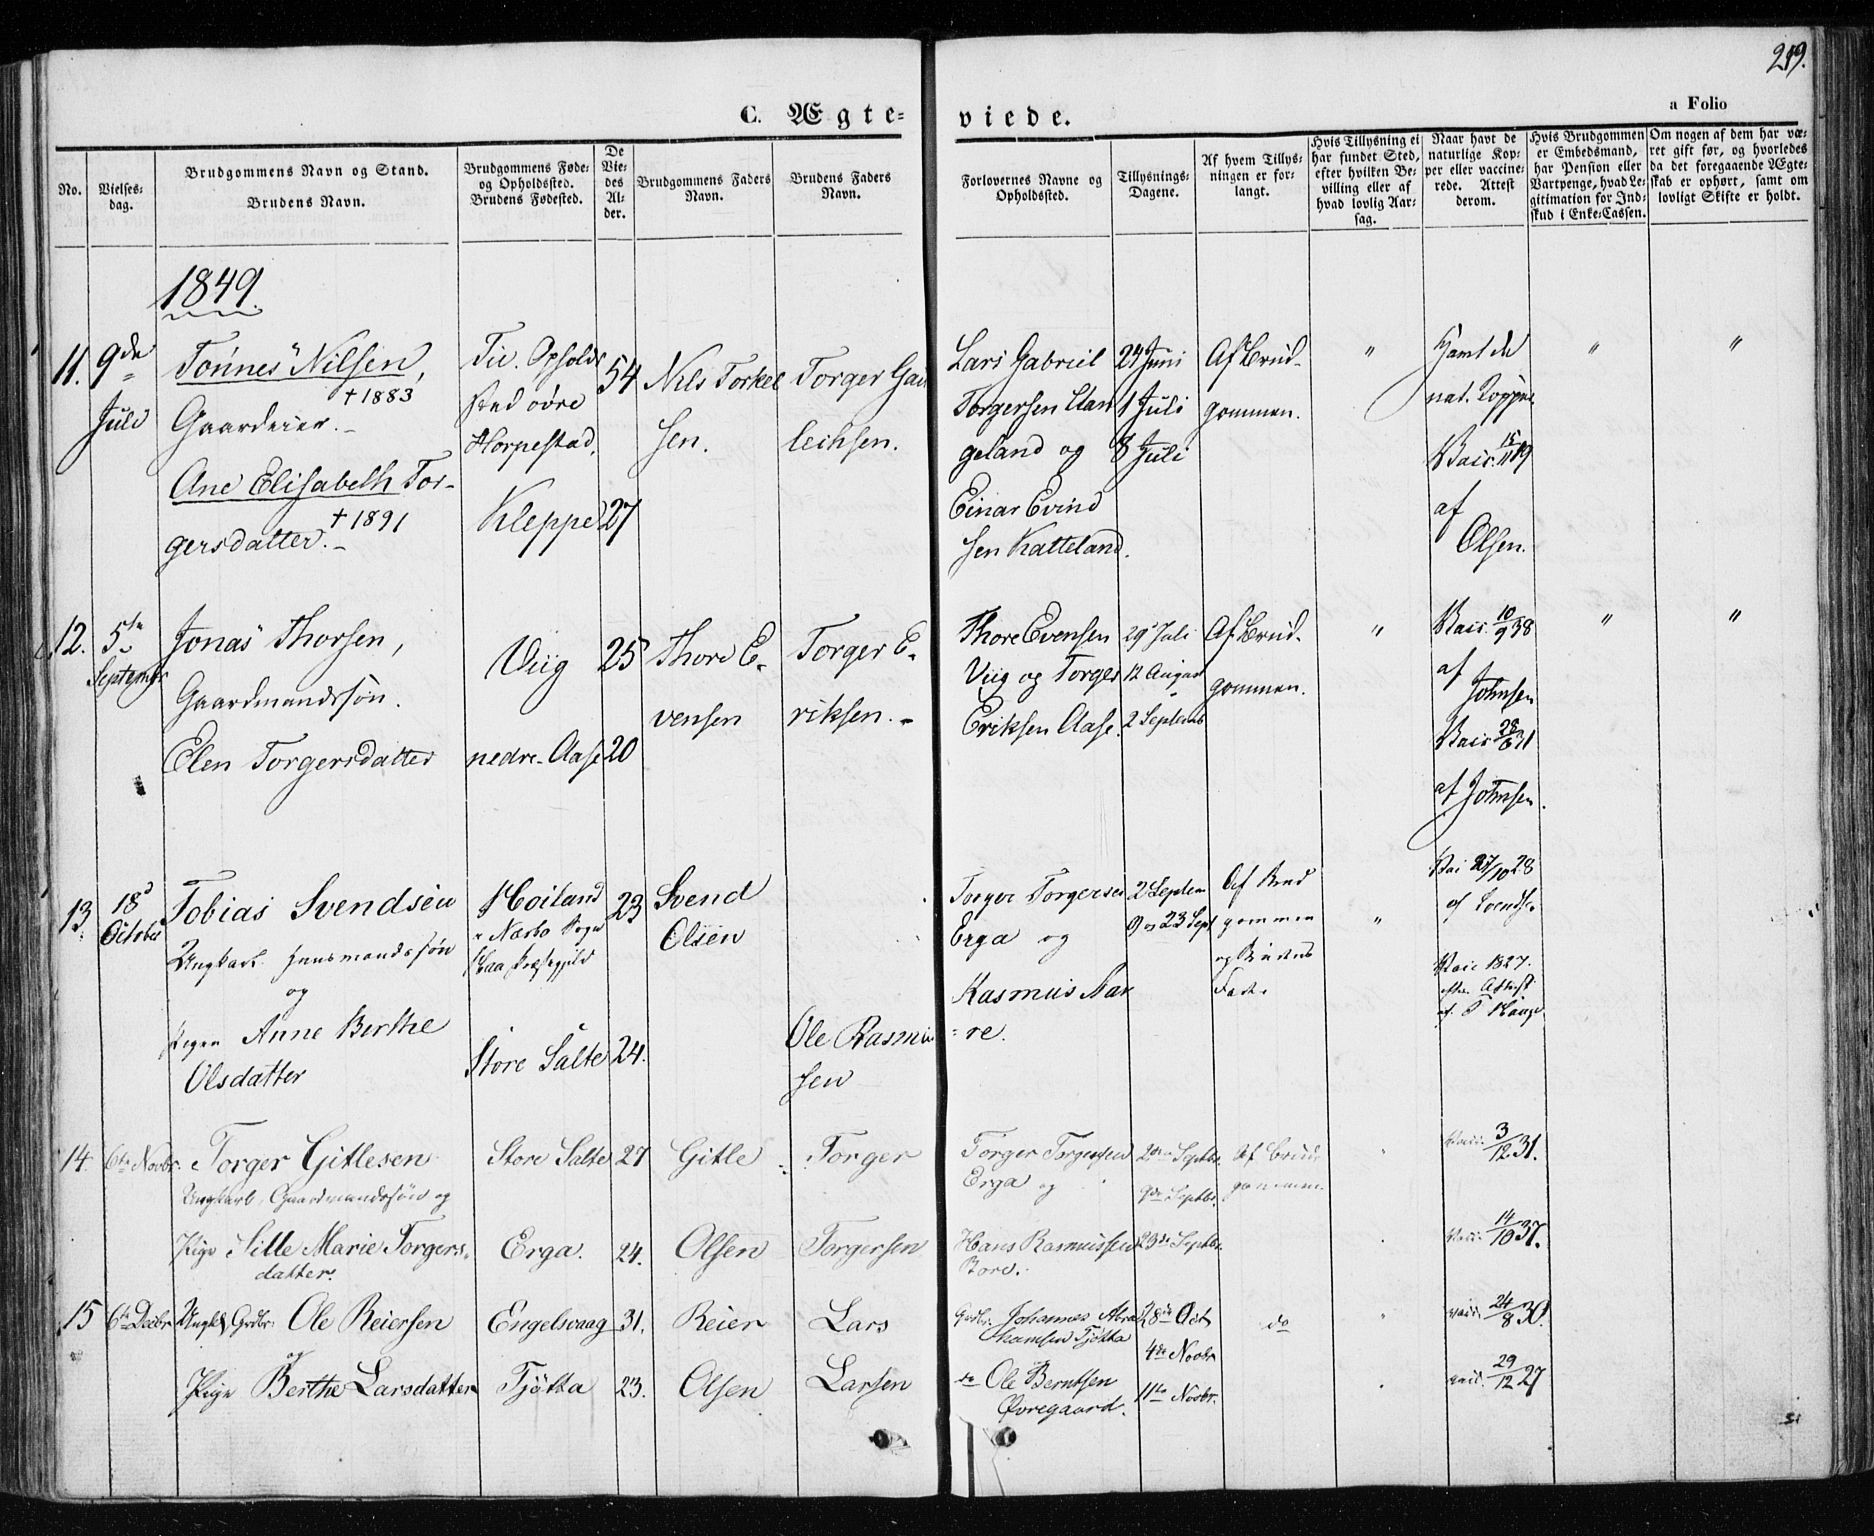 219.
C. Ægte-
viede.
a Folio
No.
Vielses-
dag.
Brudgommens Navn og Stand.
Brudens Navn.
Brudgommens Føde-
og Opholdssted.
Brudens Fødested.
De
Vie-
des
Al-
der.
Brudgommens Faders
Navn.
Brudens Faders
Navn.
Forlovernes Navne og
Opholdssted.
Tillysnings-
Dagene.
Af hvem Tillys-
ningen er for-
langt.
Hvis Tillysning ei
har fundet Sted,
efter hvilken Be-
villing eller af
hvad lovlig Aar-
sag.
Naar havt de
naturlige Kop-
per eller vaccine-
rede. Attest
derom.
Hvis Brudgommen
er Embedsmand,
har Pension eller
Vartpenge, hvad Le-
gitimation for Ind-
skud i Enke-Cassen.
Om nogen af dem har væ-
ret gift før, og hvorledes
da det foregaaende Ægte-
skab er ophørt, samt om
lovligt Skifte er holdt.
1849.
11. 9de
Juli
Tönnes Nilsen,
† 1883
Gaardeier.
Ane Elisabeth Tor-
† 1891
gersdatter.
Tu. Opholds
sted övre
Horpestad.
Kleppe
54
27
Nils Torkel
sen.
Torger Gau
leihsen.
Lars Gabriel
Torgersen Stan
geland og
Einar Evind
sen Katteland.
24 Juni
1 Juli
8 Juli
Af Brud-
gommen.
"
Hamt de
nat. Kopper
Vacc. 15/11 19
af
Olsen.
"
"
12. 5te
Septembr
Jonas Thorsen,
Gaardmandssøn.
Elen Torgersdatter
Viig
nedre Aase
25
20
Thore E-
vensen
Torger E-
riksen.
Thore Evensen
Viig og Torger
Eriksen Aase.
29 Juli
12 August
2 Septemb
Af Brud-
gommen.
"
Vacc. 10/9 38
af
Johnsen
Vacc. 28/6 31
af Johnsen.
"
"
13. 18d
October
Tobias Svendsen
Ungkarl husmandssøn
og
Pigen Anne Berthe
Olsdatter
Hoiland
Narbo Sogn
Haa Præstegjeld
Store Salte
23
24.
Svend
Olsen
Ole Rasmu
sen
Torger Torgersen
Erga og
Rasmus Nar
re.
2 Septem
9 og 23 Sept
Af Brud
gommen
og Brudens
Fader
"
Vac 27/10 28
af Svendse
Vacc 1827.
efter Attest
af
14. 6te Novbr.
Torger Gitlesen
Ungkarl, Gaardmandssøn og
Pige Sille Marie Torgers-
datter.
Store Salte
Erga.
27
24.
Gitle
Olsen
Torger
Torgersen
Torger Torgersen
Erga og
Hans Rasmussen
Bore.
2den Septbr.
9de Septbr.
23de Septbr.
Af Brud
gommen.
Vacc. 3/12 31.
Vacc. 14/10 37.
15 6te Decbr
Ungkl, Grdbr: Ole Reiersen
og
Pige Berthe Larsdatter
Engelsvaag
Tjøtta
31.
23.
Reier
Olsen
Lars
Larsen
Grdbr. Johannes Abra
hamsen Tjøtta
do Ole Berntsen
Øvregaard.
28de Oct
4de Novbr
11te Novbr.
do
"
vacc. 24/8 30.
vacc. 29/12 27